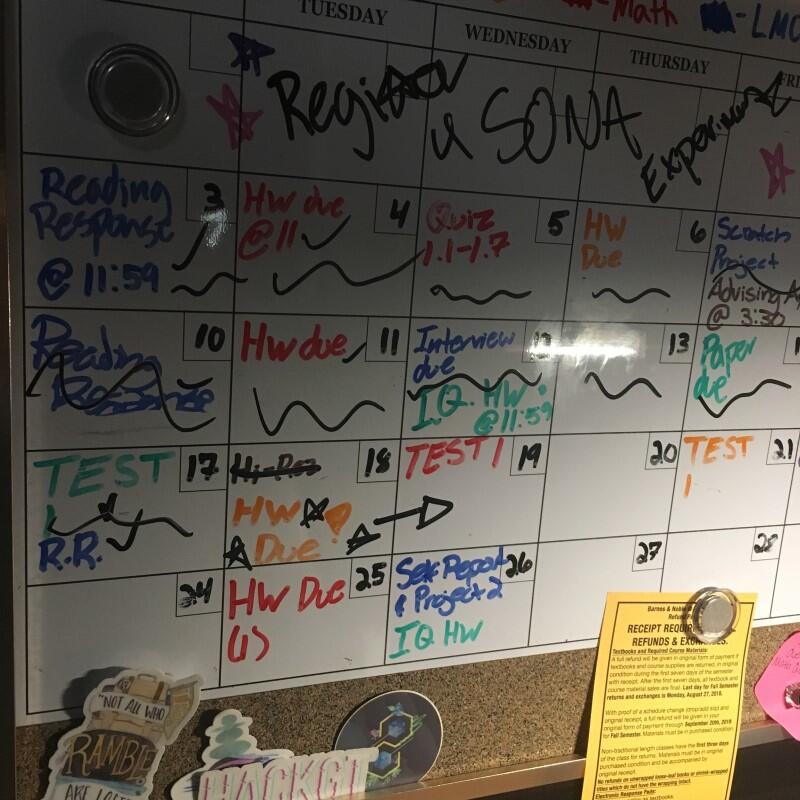 -Math
-LMC
TUESDAY
WEDNESDAY
THURSDAY
FRI
Register
4 SONA
Experiment
Reading
Response
@ 11:59
3
Hw due
@ 11
4
Quiz
1.1-1.7
5
HW
Due
6
Scratch
Project
Advising
@ 3:30
Reading
Response
10
Hw due
11
Interview
due
12
I.Q. HW
@ 11:59
13
Paper
due
TEST
1
R.R.
17
18
HW
Due
TEST 1
19
20
TEST
1
21
24
HW Due
(1)
25
Self Report
& Project 2
IQ HW
26
27
28
"NOT ALL WHO
RAMBLE
ARE LOST
HACKGT
Barnes & Noble
RECEIPT REQUIRED
REFUNDS & EXCHANGES.
Textbooks and Required Course Materials:
A full refund will be given in original form of payment if
textbooks and course supplies are returned, in original
condition during the first seven days of the semester
with receipt. After the first seven days, all textbook and
course material sales are final. Last day for Fall Semester
returns and exchanges is Monday, August 27, 2018.
With proof of a schedule change (drop/add slip) and
original receipt, a full refund will be given in your
original form of payment through September 20th, 2018
for Fall Semester. Materials must be in purchased condition.
Non-traditional length classes have the first three days
of the class for returns. Materials must be in
purchased condition and be accompanied by
original receipt.
No refunds on unwrapped loose-leaf books or shrink-wrapped
titles which do not have the wrapping intact.
Electronic Response Pads: